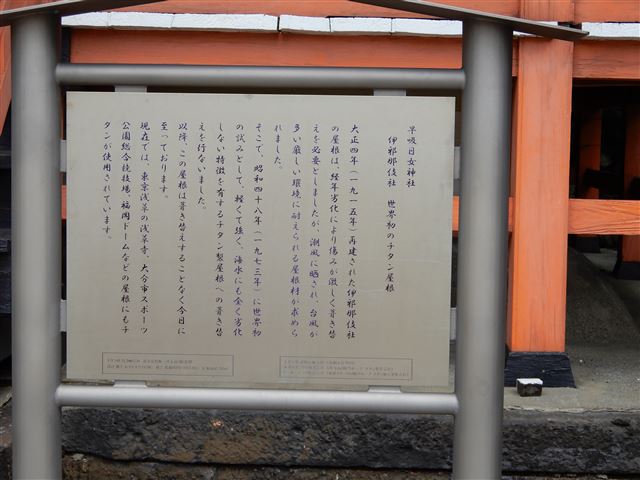 早吸日女神社
伊邪那岐社　世界初のチタン屋根
大正四年（一九一五年）再建された伊邪那岐社
の屋根は、経年劣化により傷みが激しく葺き替
えを必要としましたが、潮風に晒され、台風が
多い厳しい環境に耐えられる屋根材が求めら
れました。
そこで、昭和四十八年（一九七三年）に世界初
の試みとして、軽くて強く、海水にも全く劣化
しない特徴を有するチタン製屋根への葺き替
えを行ないました。
以降、この屋根は葺き替えすることなく今日に
至っております。
現在では、東京浅草の浅草寺、大分市スポーツ
公園総合競技場、福岡ドームなどの屋根にもチ
タンが使用されています。